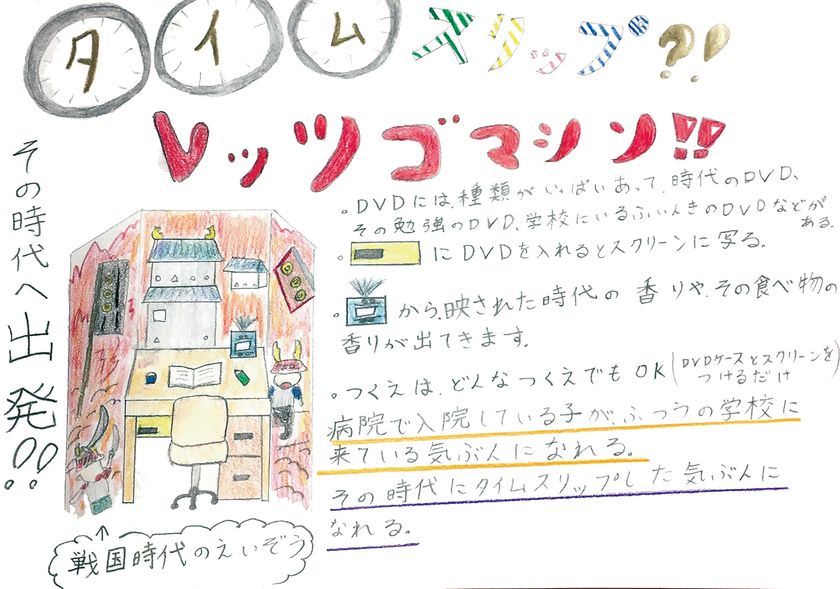 タイムスリップ?!
レッツゴマシン!!
その時代へ出発!!
。DVDには、種類がいっぱいあって、時代のDVD、
その勉強のDVD、学校にいるふいんきのDVDなどが
ある。
。にDVDを入れるとスクリーンに写る。
。から、映された時代の香りや、その食べ物の
香りが出てきます。
。つくえは、どんなつくえでもOK(DVDケースとスクリーンを
つけるだけ)
病院で入院している子が、ふつうの学校に
来ている気ぶんになれる。
その時代にタイムスリップした気ぶんに
なれる。
↑
戦国時代のえいぞう